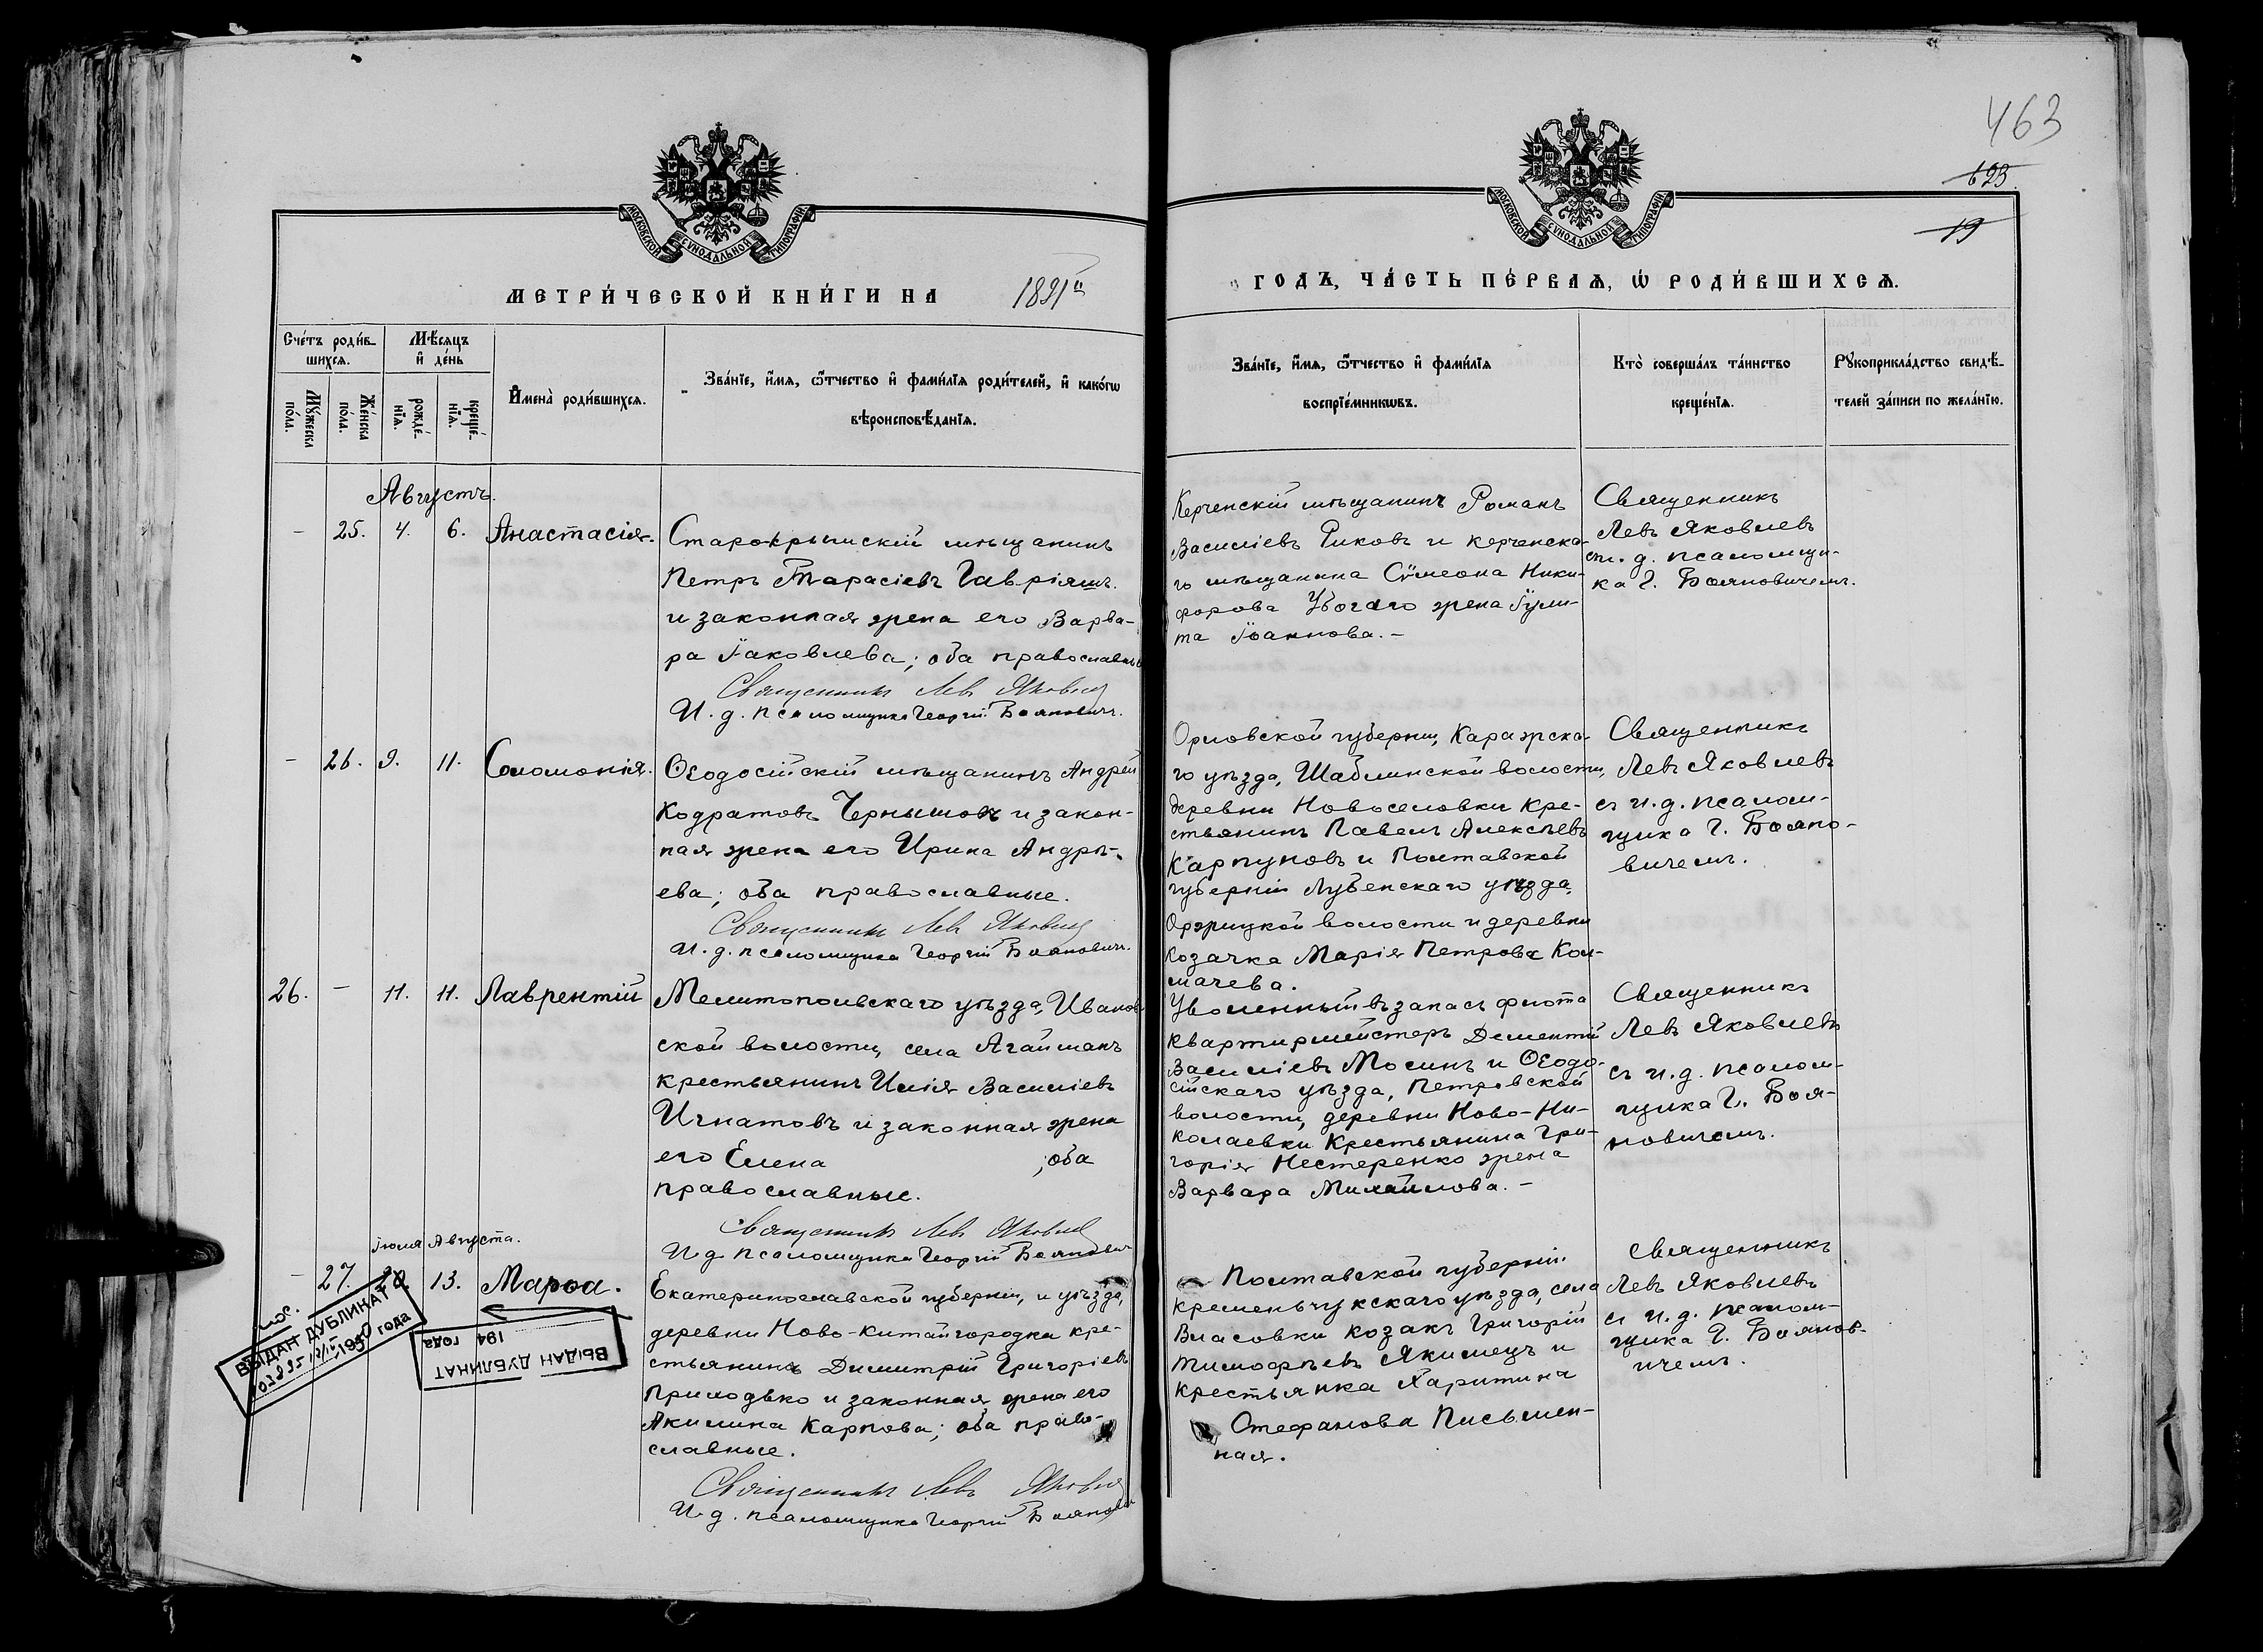 463
623
19
МОСКОВСКОЙ СѴНОДАЛЬНОЙ ТИПОГРАФІИ
МОСКОВСКОЙ СѴНОДАЛЬНОЙ ТИПОГРАФІИ
МЕТРИ́ЧЕСКОЙ КНИ́ГИ НА 1891й
ГОДЪ, ЧА́СТЬ ПЕ́РВАѦ, Ѡ҆ РОДИ́ВШИХСѦ.
Сче́тъ роди́в-
шихсѧ.
Мѣ́сѧцъ
и҆ де́нь
Мꙋ́жеска
по́ла.
Же́нска
по́ла.
рожде́-
нїѧ.
креще́-
нїѧ.
И҆мена̀ роди́вшихсѧ.
Зва́нїе, и҆́мѧ, ѻ҆́тчество и҆ фами́лїѧ роди́телей, и҆ како́гѡ
вѣроисповѣ́данїѧ.
Зва́нїе, и҆́мѧ, ѻ҆́тчество и҆ фами́лїѧ
воспрїе́мникѡвъ.
Кто̀ соверша́лъ та́инство
креще́нїѧ.
Рꙋкоприкла́дство свидѣ́-
телей за́писи по жела́нїю.
Августъ.
- 25. 4. 6. Анастасія.
Старокрымскій мѣщанинъ
Петръ Тарасіевъ Гавріяшъ.
и законная жена его Варва-
ра Іаковлева; оба православные
Священникъ Левъ Яковлев
И. д. псаломщика Георгій Бояновичъ.
Керченскій мѣщанинъ Романъ
Василіевъ Рыковъ и керченска-
го мѣщанина Сѵмеона Ники-
форова Убогаго жена Іули-
та Іоаннова. -
Священникъ
Левъ Яковлевъ
съ и. д. псаломщи-
ка Г. Бояновичемъ.
- 26. 9. 11. Соломонія.
Ѳеодосійскій мѣщанинъ Андрей
Кодратовъ Чернышовъ и закон-
ная жена его Ирина Андрѣ-
ева; оба православные.
Священникъ Левъ Яковлев
И. д. псаломщика Георгій Бояновичъ.
Орловской губерніи, Каражска-
го уѣзда, Шаблинской волости,
деревни Новоселовки кре-
стьянинъ Павелъ Алексѣевъ
Карпуновъ и Полтавской
губерніи Лубенскаго уѣзда,
Оржицкой волости и деревни
козачка Марія Петрова Кол-
мачева.
Священникъ
Левъ Яковлевъ
съ и. д. псалом-
щика Г. Бояно-
вичемъ.
26. - 11. 11. Лаврентій
Мелитопольскаго уѣзда, Иванов
ской волости, села Агайманъ
крестьянинъ Илія Василіевъ
Игнатовъ и законная жена
его Елена ; оба
православные.
Священникъ Левъ Яковлев
И. д. псаломщика Георгій Бояновичъ
Уволенный въ запасъ флота
квартирмейстеръ Дементій
Василіевъ Мосинъ и Ѳеодо-
сійскаго уѣзда, Петровской
волости, деревни Ново-Ни-
колаевки крестьянина Гри-
горія Нестеренко жена
Варвара Михаилова. -
Священникъ
Левъ Яковлевъ
съ и. д. псалом-
щика Г. Боя-
новичемъ.
Іюля Августа.
- 27. 28 13. Марѳа.
Екатеринославской губерніи, и уѣзда,
деревни Ново-Китайгородка кре-
стьянинъ Димитрій Григоріевъ
Приходько и законная жена его
Акилина Карпова; оба право-
славные.
Священникъ Левъ Яковлев
И. д. псаломщика Георгій Боянов
Полтавской губерніи
кременьчукскаго уѣзда, села
Власовки козакъ Григорій
Тимофѣевъ Якимецъ и
крестьянка Харитина
Стефанова Письмен-
ная.
Священникъ
Левъ Яковлевъ
съ и. д. псалом-
щика Г. Боянов-
ичемъ.
ВЫДАН ДУБЛИКАТ
1950 года
ВЫДАН ДУБЛИКАТ
194 года